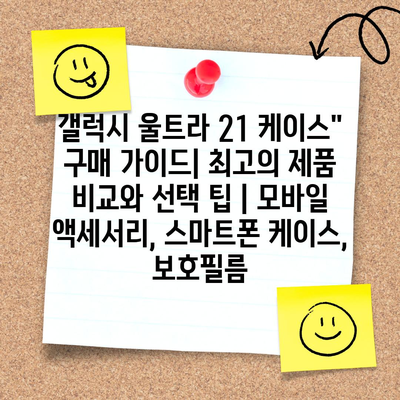 갤럭시 울트라 21 케이스"
구매 가이드| 최고의 제품
비교와 선택 팁 | 모바일
액세서리, 스마트폰 케이스,
보호필름